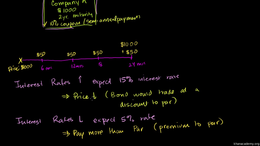 Company A
$1000
2yr maturity
10% coupon (semi-annual payments)
$1000
$50 $50 $50 $50
Price $1000 6m 12m 18 24m
Interest Rates ↑ expect 15% interest rate
⇒ Price ↓ (Bond would trade at a
discount to par)
Interest Rates ↓ expect 5% rate
⇒ Pay more than Par (premium to par)